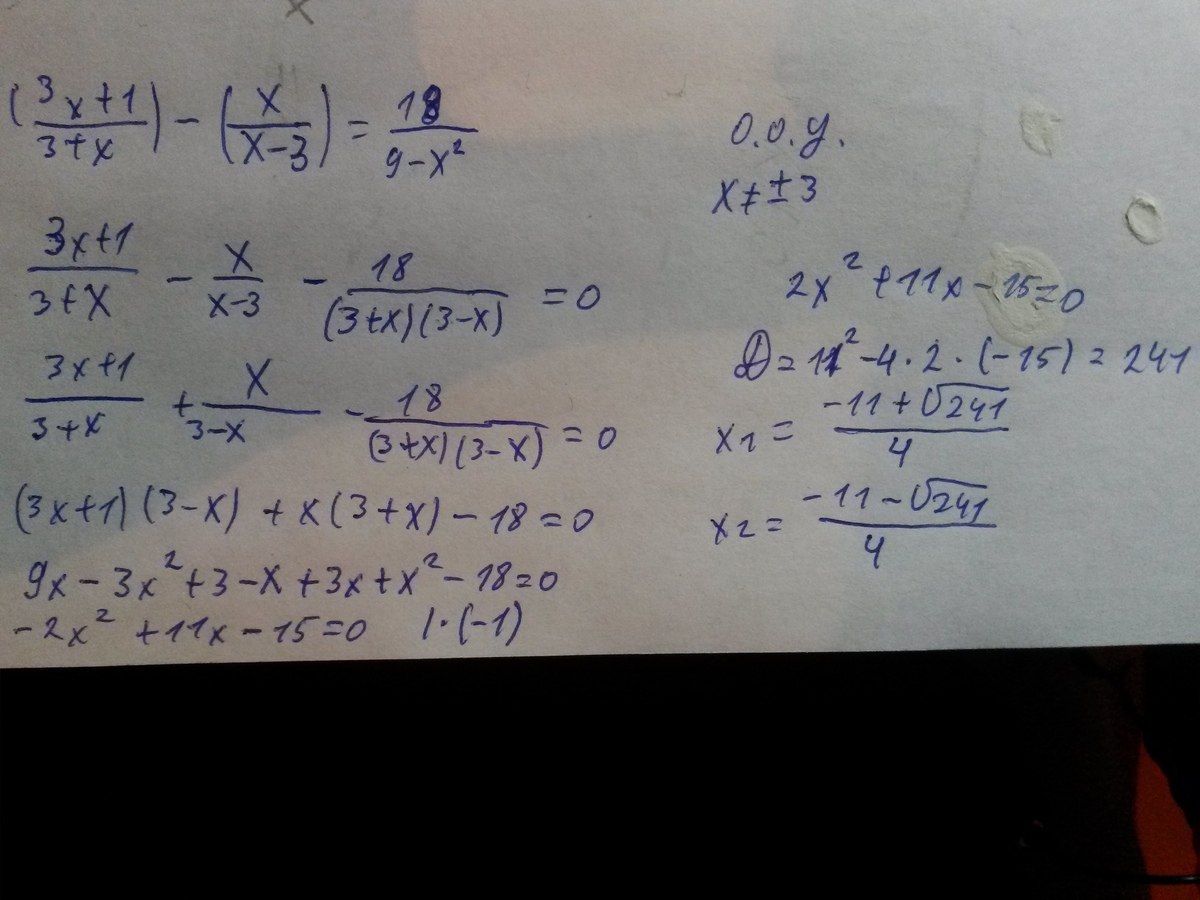 (3x+1)/(3+x) - (x/(x-3)) = 18/(9-x²)
(3x+1)/(3+x) - x/(x-3) - 18/((3+x)(3-x)) = 0
(3x+1)/(3+x) + x/(3-x) - 18/((3+x)(3-x)) = 0
(3x+1)(3-x) + x(3+x) - 18 = 0
9x - 3x² + 3 - x + 3x + x² - 18 = 0
-2x² + 11x - 15 = 0 |·(-1)
О.О.У.
x ≠ ±3
2x² + 11x - 15 = 0
D = 11² - 4·2·(-15) = 241
x₁ = (-11+√241)/4
x₂ = (-11-√241)/4